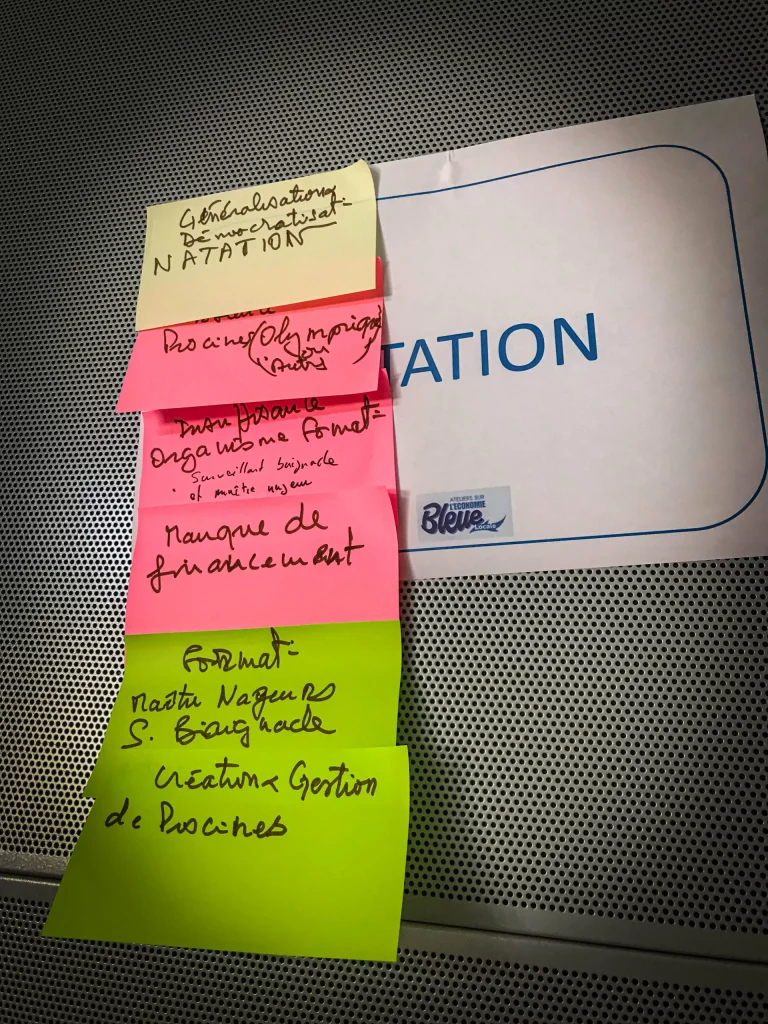 Généralisation &
Démocratisat-
NATATION
Piscines (Olympique
ou
Autres)
Insuffisance
organisme format-
Surveillant baignade
et maître nageur
Manque de
financement
Format-
Maître Nageurs
S. Baignade
Création & Gestion
de Piscines
TATION
ATELIERS SUR
L'ECONOMIE
Bleue
Locale